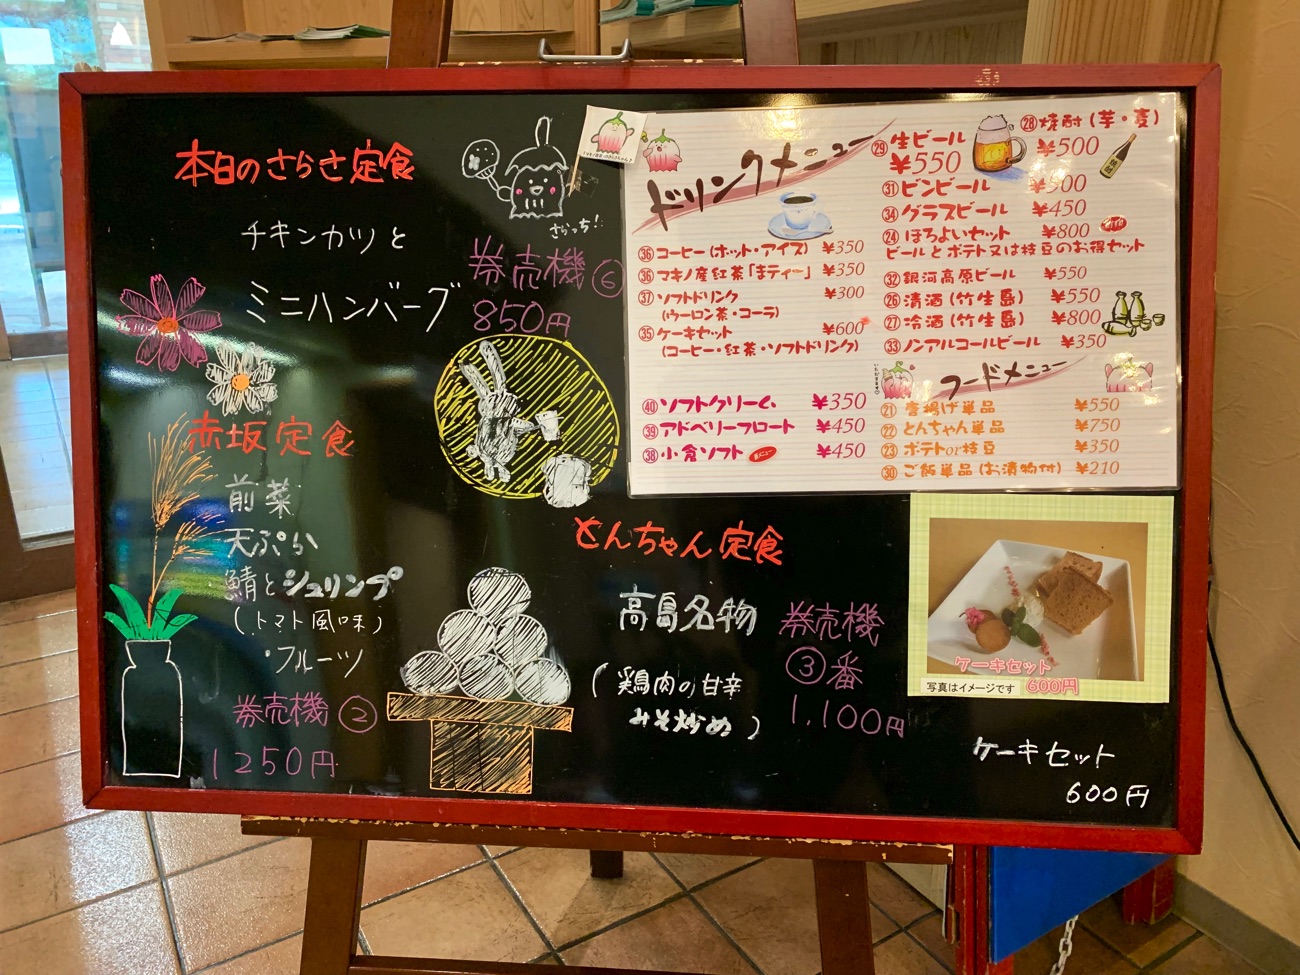 本日のさらさ定食
チキンカツと
ミニハンバーグ
券売機⑥
850円
さらっち!!
赤坂定食
前菜
天ぷら
・鯖とシュリンプ
(トマト風味)
・フルーツ
券売機②
1250円
とんちゃん定食
高島名物
(鶏肉の甘辛
みそ炒め)
券売機
③番
1,100円
ドリンクメニュー
㊱コーヒー(ホット・アイス) ¥350
㊱マキノ産紅茶「まティー」 ¥350
㊲ソフトドリンク ¥300
(ウーロン茶・コーラ)
㉟ケーキセット ¥600
(コーヒー・紅茶・ソフトドリンク)
㊵ソフトクリーム ¥350
㊴アドベリーフロート ¥450
㊳小倉ソフト ¥450
㉙生ビール
¥550
㉘焼酎(芋・麦)
¥500
㉛ビンビール ¥500
㉞グラスビール ¥450
㉔ほろよいセット ¥800
ビールとポテト又は枝豆のお得セット
㉜銀河高原ビール ¥550
㉖清酒(竹生島) ¥550
㉗冷酒(竹生島) ¥800
㉝ノンアルコールビール ¥350
フードメニュー
㉑唐揚げ単品 ¥550
㉒とんちゃん単品 ¥750
㉓ポテトor枝豆 ¥350
㉚ご飯単品(お漬物付) ¥210
ケーキセット
写真はイメージです 600円
ケーキセット
600円